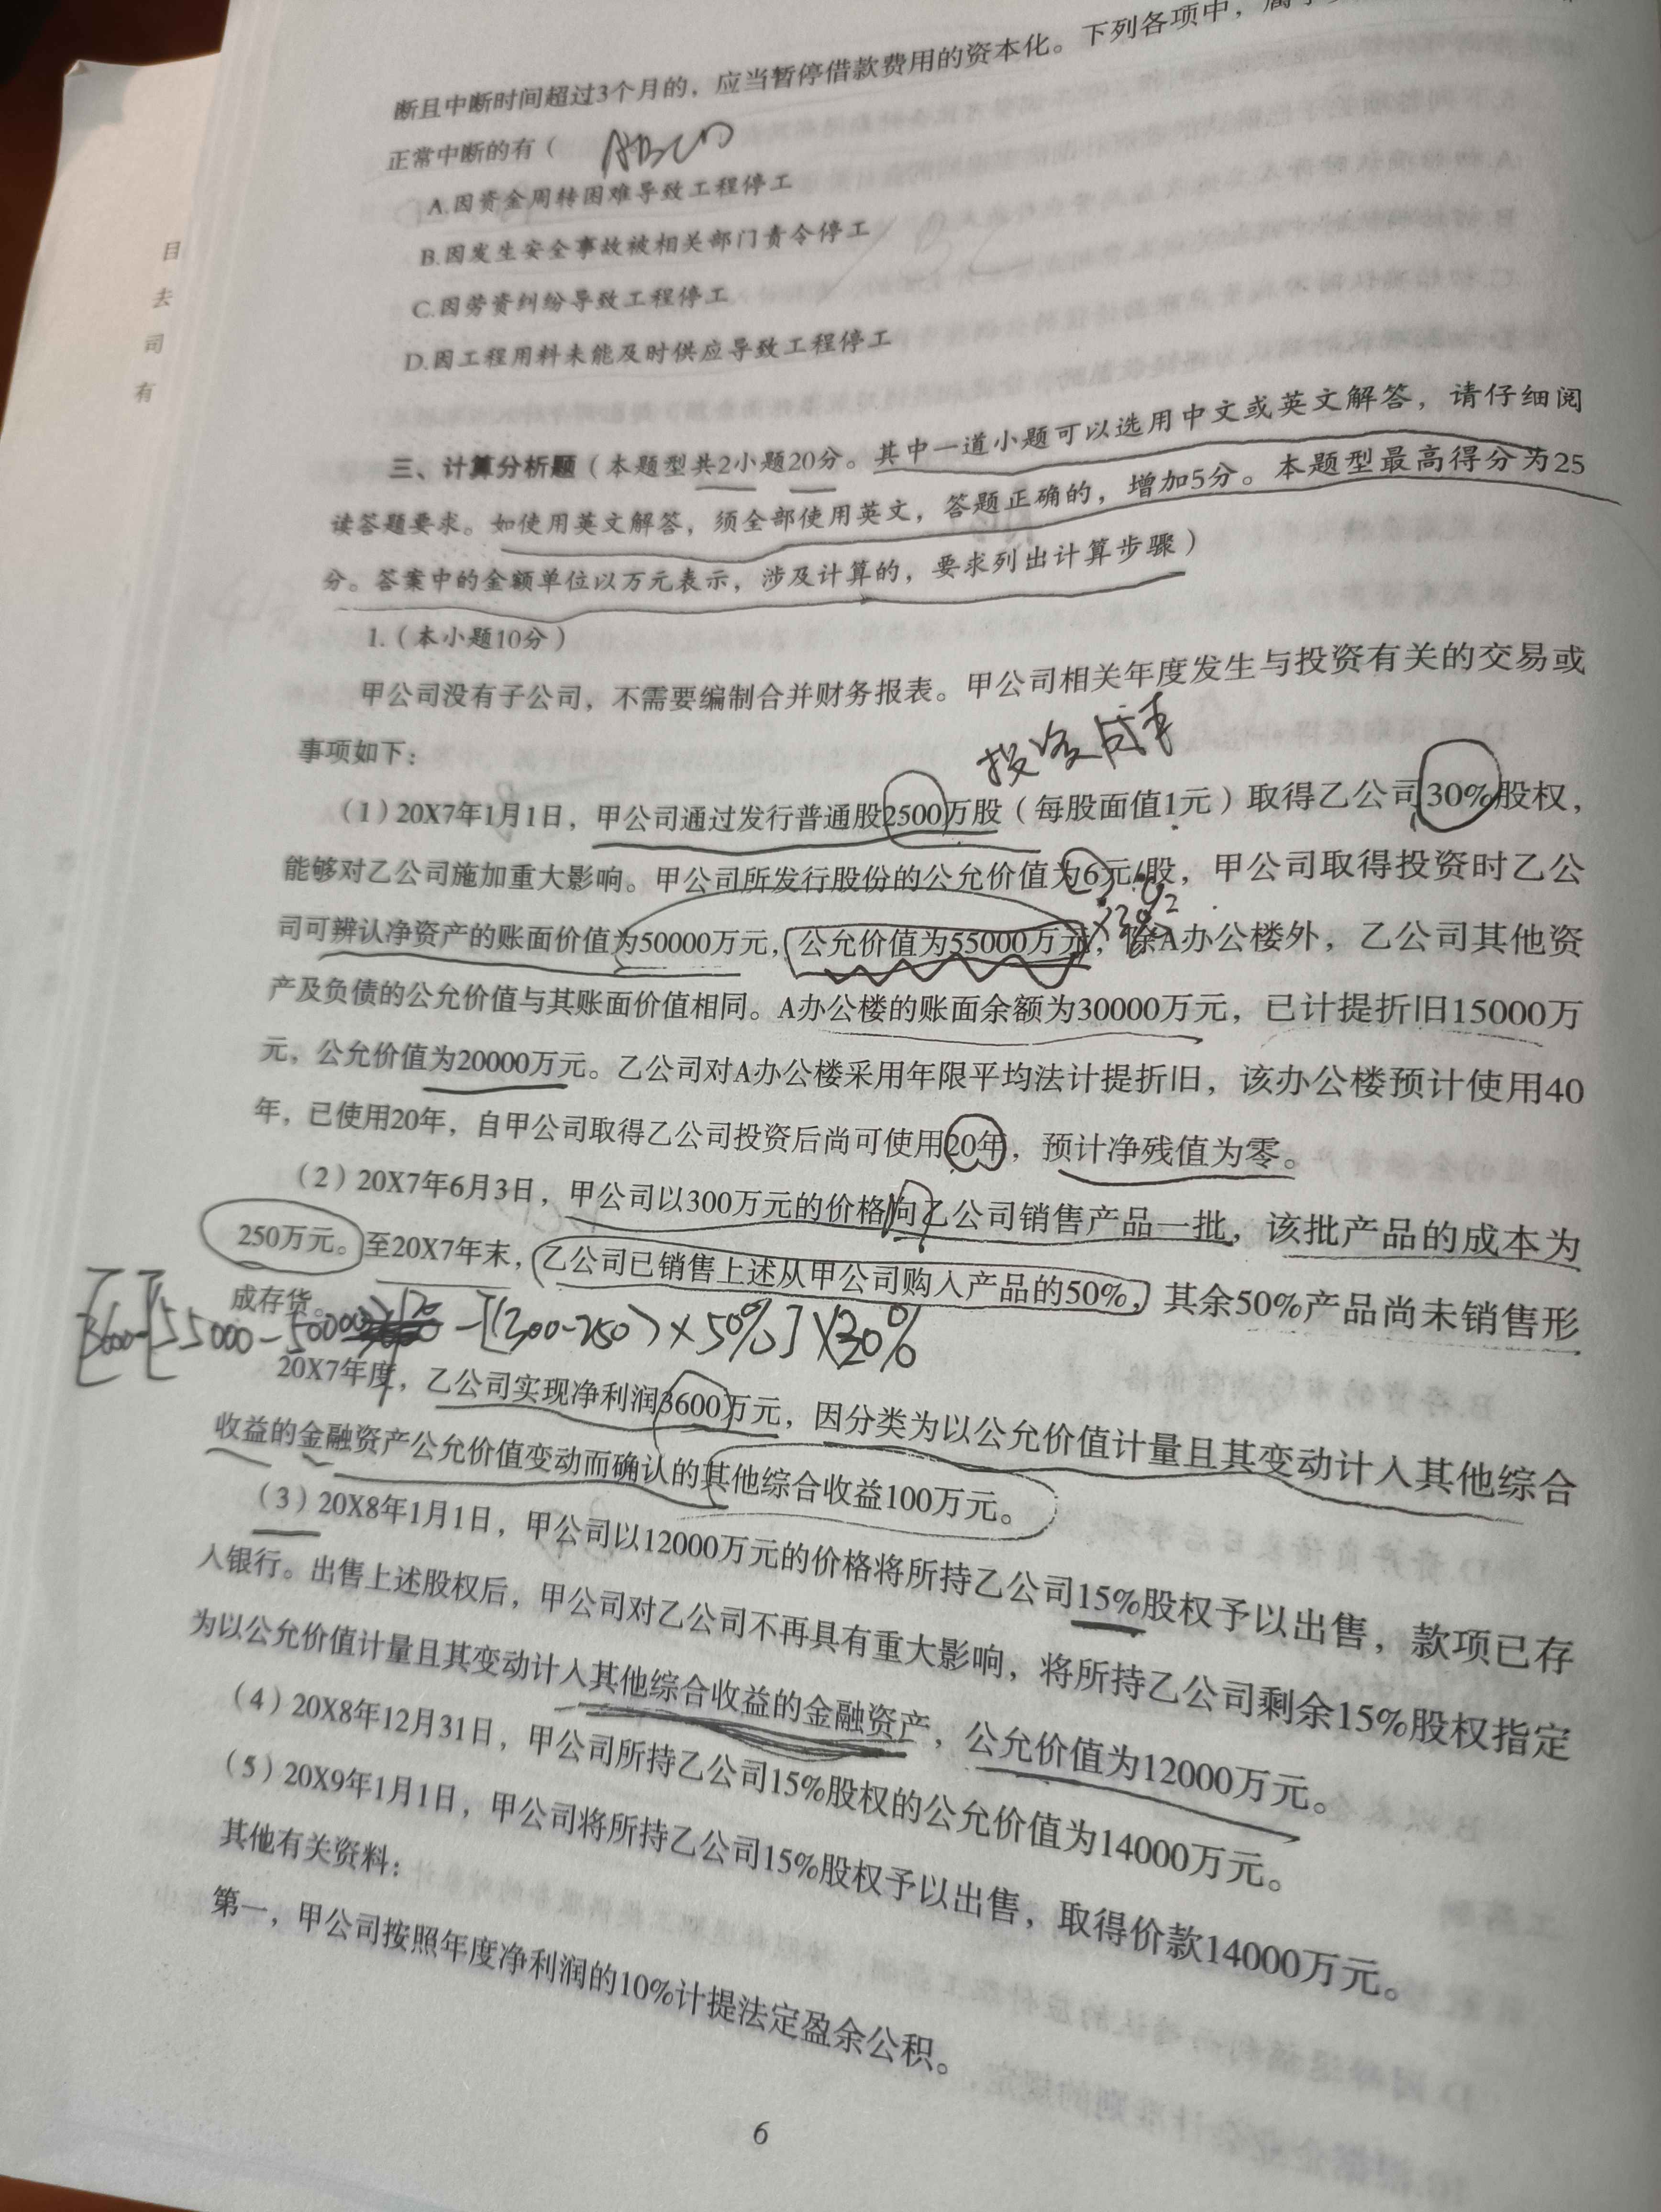 断且中断时间超过3个月的，应当暂停借款费用的资本化。下列各项中，
正常中断的有（ ABCD
A.因资金周转困难导致工程停工
B.因发生安全事故被相关部门责令停工
C.因劳资纠纷导致工程停工
D.因工程用料未能及时供应导致工程停工
三、计算分析题（本题型共2小题20分。其中一道小题可以选用中文或英文解答，请仔细阅
读答题要求。如使用英文解答，须全部使用英文，答题正确的，增加5分。本题型最高得分为25
分。答案中的金额单位以万元表示，涉及计算的，要求列出计算步骤）
1.（本小题10分）
甲公司没有子公司，不需要编制合并财务报表。甲公司相关年度发生与投资有关的交易或
事项如下：
投资成本
（1）20X7年1月1日，甲公司通过发行普通股2500万股（每股面值1元）取得乙公司30%股权，
能够对乙公司施加重大影响。甲公司所发行股份的公允价值为6元/股，甲公司取得投资时乙公
×30%
司可辨认净资产的账面价值为50000万元，公允价值为55000万元，除A办公楼外，乙公司其他资
产及负债的公允价值与其账面价值相同。A办公楼的账面余额为30000万元，已计提折旧15000万
元，公允价值为20000万元。乙公司对A办公楼采用年限平均法计提折旧，该办公楼预计使用40
年，已使用20年，自甲公司取得乙公司投资后尚可使用20年，预计净残值为零。
（2）20X7年6月3日，甲公司以300万元的价格向乙公司销售产品一批，该批产品的成本为
250万元。至20X7年末，乙公司已销售上述从甲公司购入产品的50%，其余50%产品尚未销售形
成存货。
[3600-[55000-50000) -[(300-250)×50%]×30%
20X7年度，乙公司实现净利润3600万元，因分类为以公允价值计量且其变动计入其他综合
收益的金融资产公允价值变动而确认的其他综合收益100万元。
（3）20X8年1月1日，甲公司以12000万元的价格将所持乙公司15%股权予以出售，款项已存
入银行。出售上述股权后，甲公司对乙公司不再具有重大影响，将所持乙公司剩余15%股权指定
为以公允价值计量且其变动计入其他综合收益的金融资产，公允价值为12000万元。
（4）20X8年12月31日，甲公司所持乙公司15%股权的公允价值为14000万元。
（5）20X9年1月1日，甲公司将所持乙公司15%股权予以出售，取得价款14000万元。
其他有关资料：
第一，甲公司按照年度净利润的10%计提法定盈余公积。
6
目
去
司
有